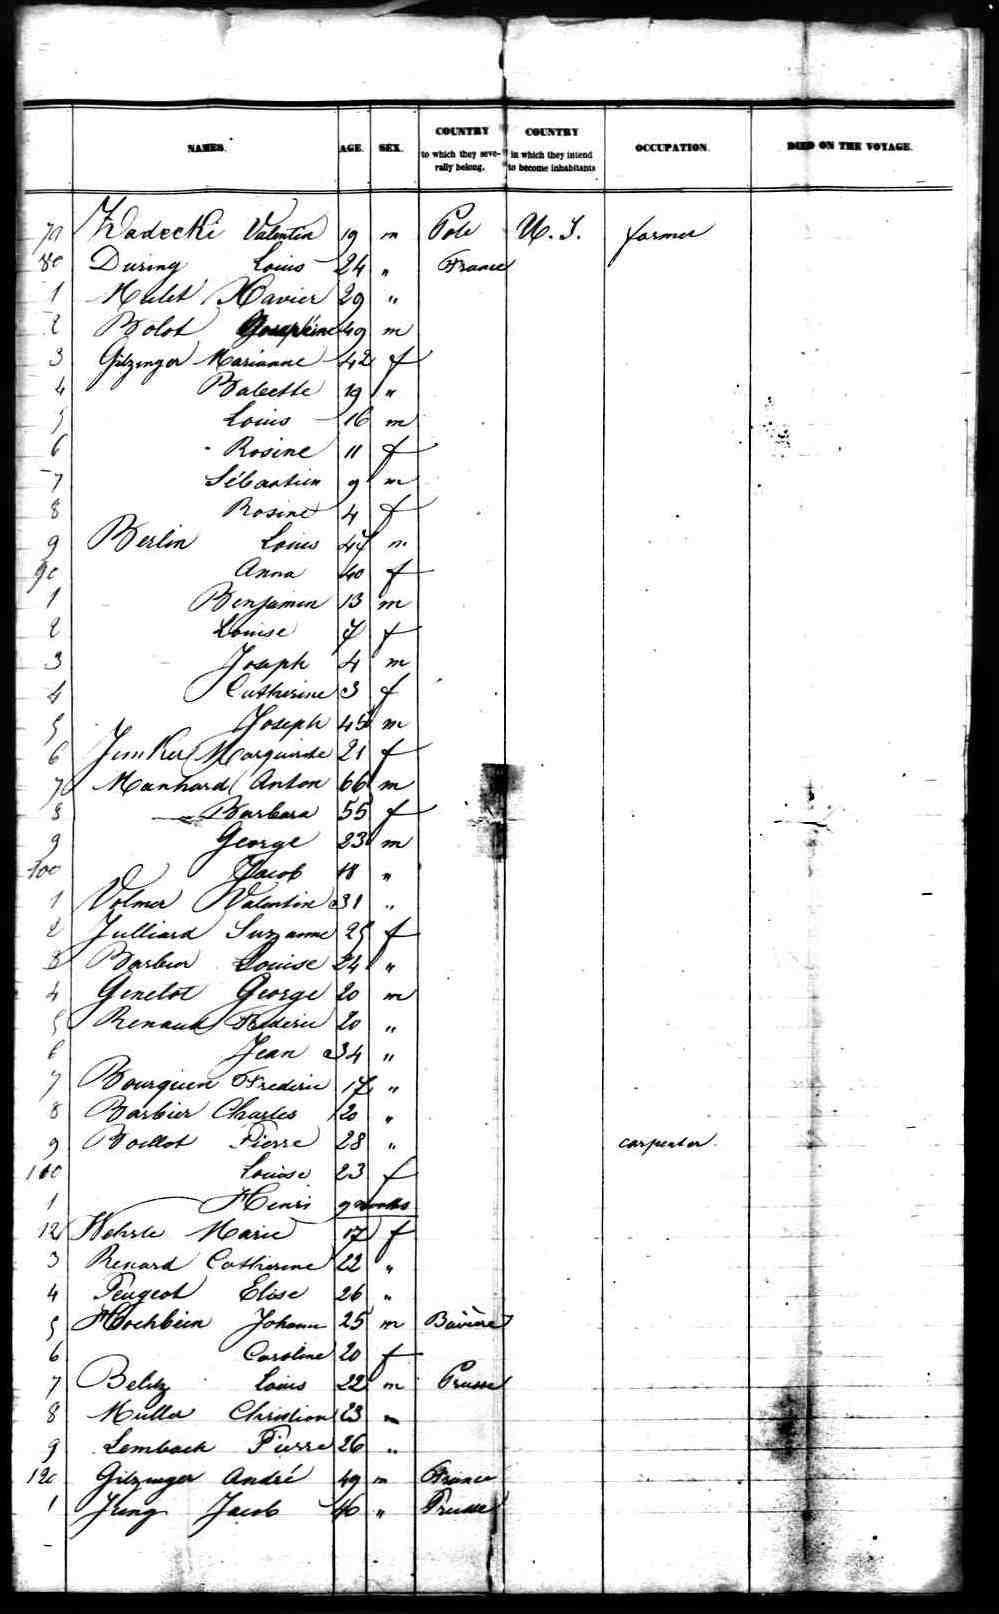 NAMES. AGE. SEX. COUNTRY to which they severally belong. COUNTRY in which they intend to become inhabitants OCCUPATION. DIED ON THE VOYAGE.
79 Valentin 19 m Pole U. S. farmer
80 During Louis 24 " France
1 Mulet Xavier 29 "
2 Bolot 49 m
3 Gitzinger Marianne 42 f
4 Babette 19 "
5 Louis 16 m
6 Rosine 11 f
7 Sébastien 9 m
8 Rosine 4 f
9 Berlin Louis 47 m
90 Anna 40 f
1 Benjamin 13 m
2 Louise 7 f
3 Joseph 4 m
4 Catherine 3 f
5 Joseph 45 m
6 Junker 21 f
7 Manhard Anton 66 m
8 Barbara 55 f
9 George 23 m
100 Jacob 18 "
1 Volmer Valentin 31 "
2 Julliard Suzanne 25 f
3 Louise 24 "
4 Genelot George 20 m
5 Renaud Frederic 20 "
6 Jean 34 "
7 Bourquin Frederic 17 "
8 Barbier Charles 20 "
9 Boillot Pierre 28 " carpenter
110 Louise 23 f
1 Henri 9 months
12 Wehrle Marie 17 f
3 Renard Catherine 22 "
4 Peugeot Elise 26 "
5 Hochbein Johann 25 m Bavière
6 Caroline 20 f
7 Belitz Louis 22 m Prusse
8 Muller Christian 23 "
9 Lembach Pierre 26 "
120 Gitzinger André 49 m France
1 Jung Jacob "  Prusse